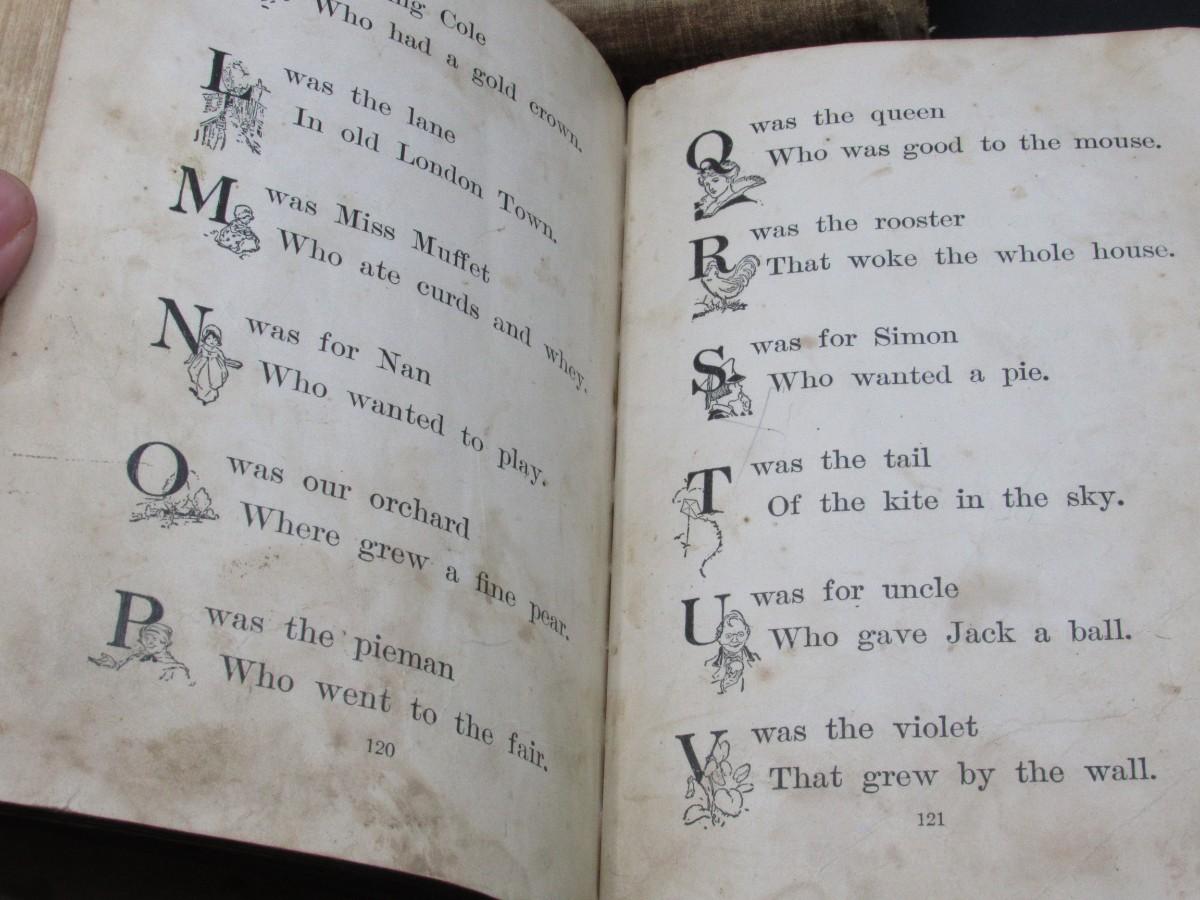 ng Cole
Who had a gold crown.
L was the lane
In old London Town.
M was Miss Muffet
Who ate curds and whey.
N was for Nan
Who wanted to play.
O was our orchard
Where grew a fine pear.
P was the pieman
Who went to the fair.
120
Q was the queen
Who was good to the mouse.
R was the rooster
That woke the whole house.
S was for Simon
Who wanted a pie.
T was the tail
Of the kite in the sky.
U was for uncle
Who gave Jack a ball.
V was the violet
That grew by the wall.
121